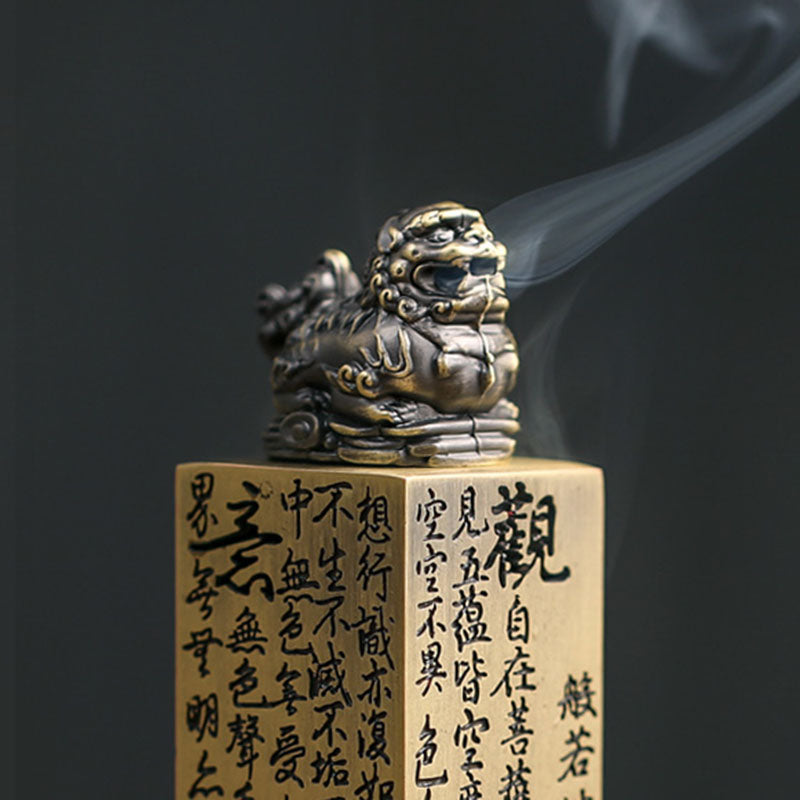 般若
觀自在菩薩
見五蘊皆空度
空空不異色
想行識亦復如
不生不滅不垢
中無色無受
意無色聲
界無無明亦